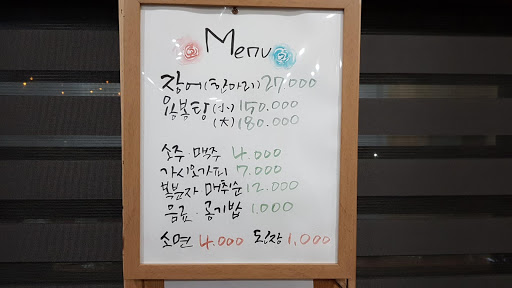 Menu
장어(한마리) 27.000
용봉탕 (小) 150.000
(大) 180.000
소주·맥주 4.000
가시오가피 7.000
복분자 매취순 12.000
음료·공기밥 1.000
소면 4.000 된장 1,000